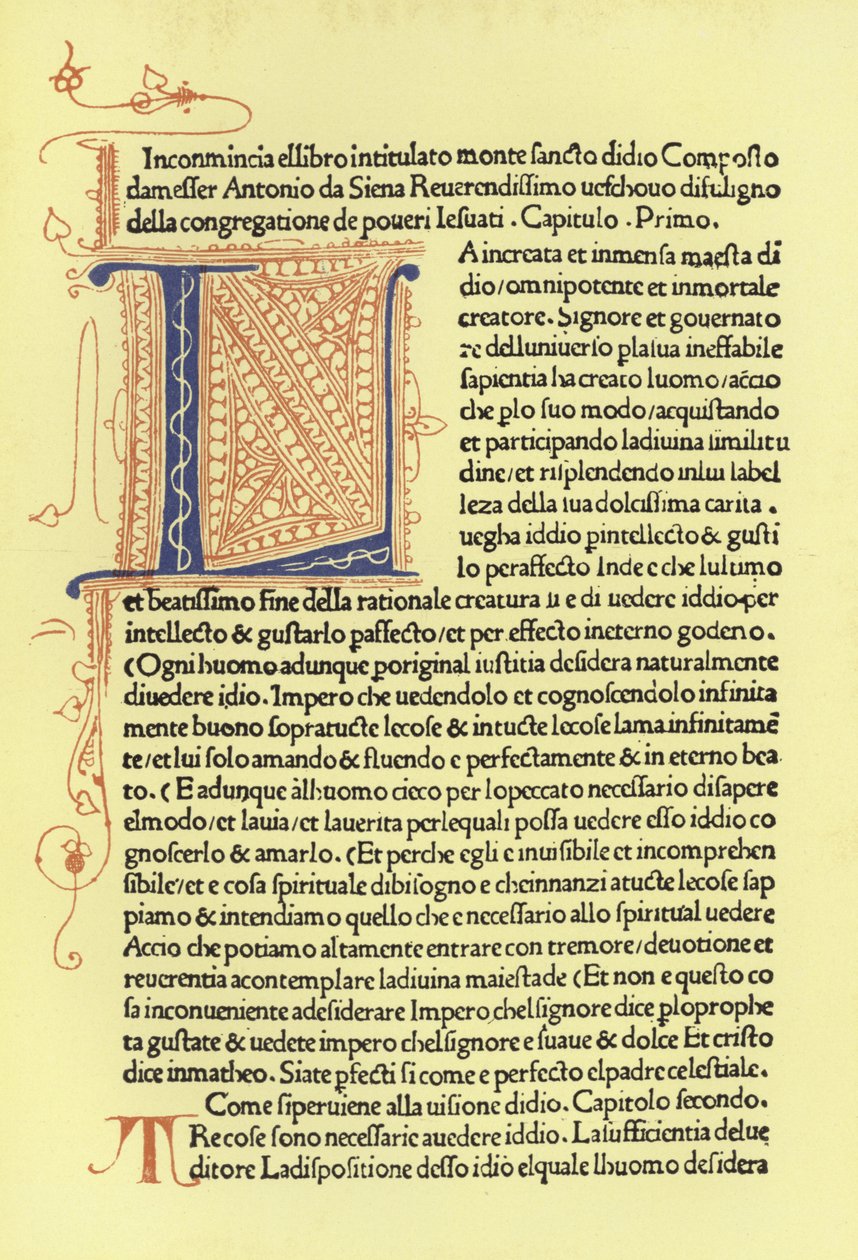 Inconmincia ellibro intitulato monte sancto didio Composto
da messer Antonio da Siena Reuerendissimo uescouo difuligno
della congregatione de poueri Iesuati . Capitulo . Primo.
LA increata et inmensa maesta di
dio/omnipotente et inmortale
creatore. Signore et gouernato
re delluniuerso ꝑ la sua ineffabile
sapientia ha creato luomo/accio
che ꝑlo suo modo/acquistando
et participando ladiuina similitu
dine/et risplendendo inlui label
leza della sua dolcissima carita .
uegha iddio ꝑintellecto & gusti
lo peraffecto Inde e che lultimo
et beatissimo fine della rationale creatura si e di uedere iddio per
intellecto & gustarlo ꝑaffecto/et per effecto ineterno goderlo.
(Ogni huomo adunque ꝑoriginal iustitia desidera naturalmente
diuedere idio. Impero che uedendolo et cognoscendolo infinita
mente buono sopratucte lecose & intucte lecose lama infinitamē
te/et lui solo amando & fluendo e perfectamente & in eterno bea
to. (E adunque àlhuomo cieco per lopeccato necessario disapere
elmodo/et lauia/et lauerita perlequali possa uedere esso iddio co
gnoscerlo & amarlo. (Et perche egli e inuisibile et incomprehen
sibile/et e cosa spirituale dibisogno e cheinnanzi atucte lecose sap
piamo & intendiamo quello che e necessario allo spiritual uedere
Accio che potiamo altamente entrare con tremore/deuotione et
reuerentia acontemplare ladiuina maiestade (Et non e questo co
sa inconueniente adesiderare Impero chelsignore dice ꝑloprophe
ta gustate & uedete impero chelsignore e suaue & dolce Et cristo
dice inmatheo. Siate ꝑfecti si come e perfecto elpadre celestiale.
Come siperuiene alla uisione didio. Capitolo secondo.
TRe cose sono necessarie auedere iddio. La sufficientia delue
ditore La dispositione desso idio elquale lhuomo desidera